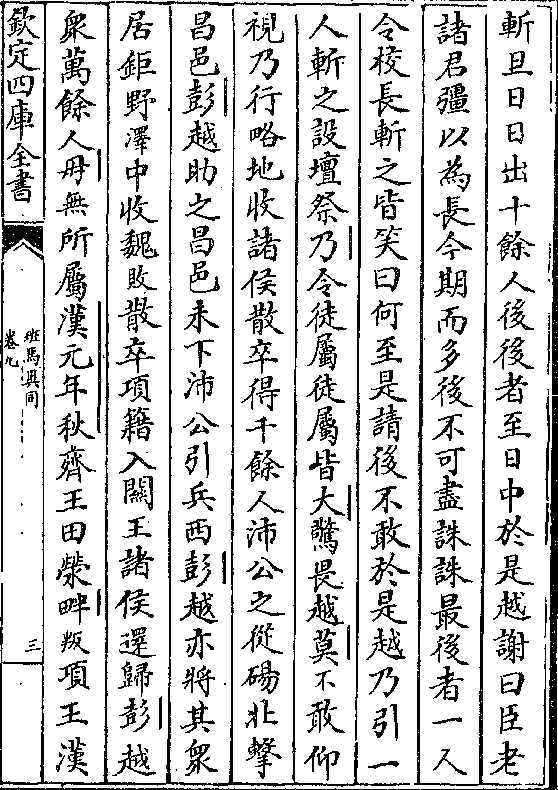 斬旦日日出十餘人後後者至日中於是越謝曰臣老
諸君彊以為長今期而多後不可盡誅誅最後者一人
令校長斬之皆笑曰何至是請後不敢於是越乃引一
人斬之設壇祭乃令徒屬徒屬皆大驚畏越莫不敢仰
視乃行略地收諸侯散卒得千餘人沛公之從碭北擊
昌邑彭越助之昌邑未下沛公引兵西彭越亦將其衆
居鉅野澤中收魏敗散卒項籍入關王諸侯還歸彭越
衆萬餘人毋無所屬漢元年秋齊王田榮畔叛項王漢
欽定四庫全書
班馬異同
卷九
三